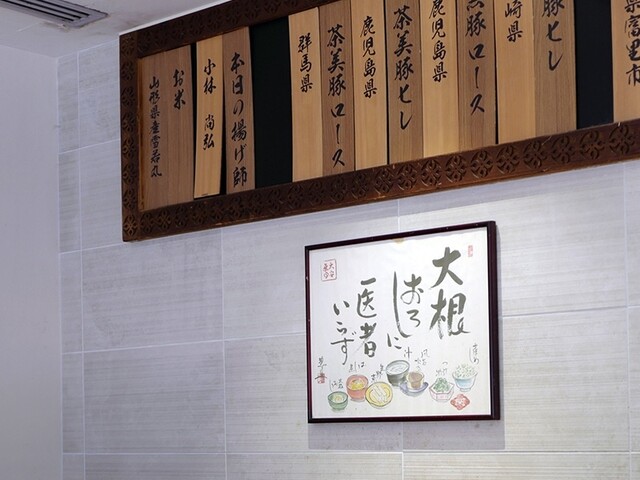 県富里市
豚ヒレ
崎県
黒豚ロース
鹿児島県
茶美豚ヒレ
鹿児島県
茶美豚ロース
群馬県
本日の揚げ師
小林 尚弘
お米
山形県産雪若丸
大根
おろしに
医者
いらず